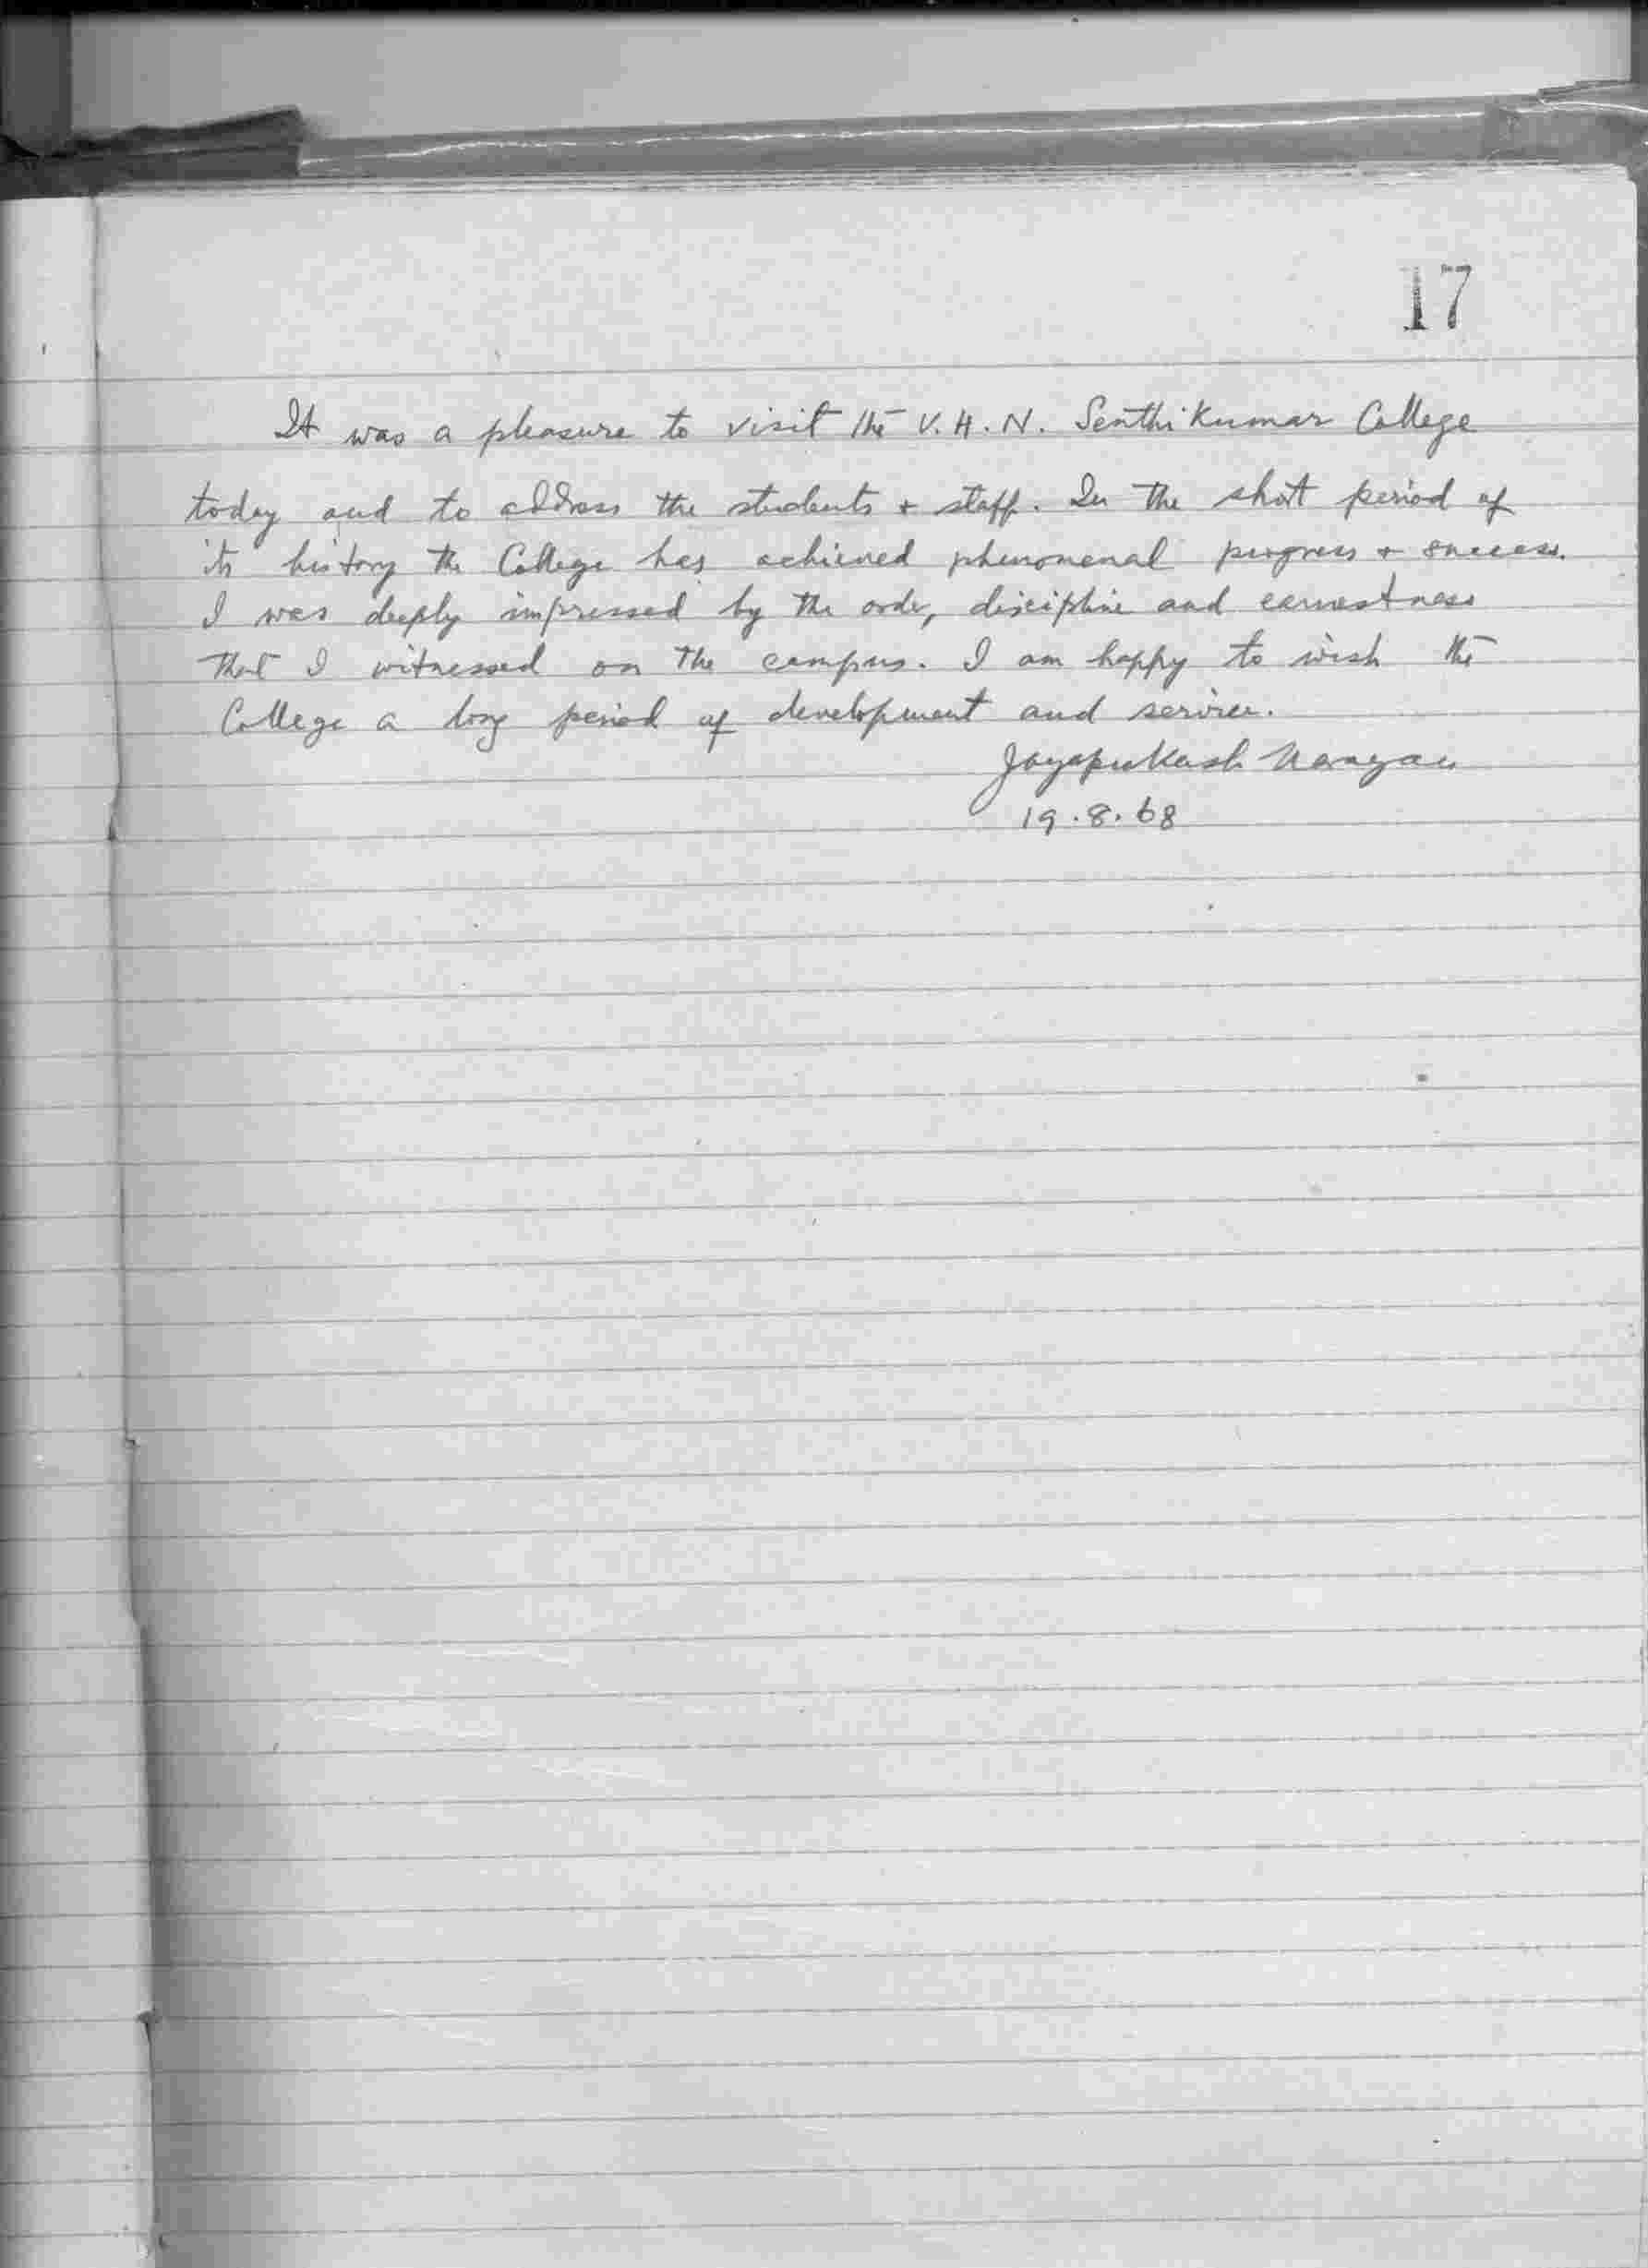 17
It was a pleasure to visit the V. H. N. Senthikumar College
today and to address the students + staff. In the short period of
its history the College has achieved phenomenal progress + success.
I was deeply impressed by the order, discipline and earnestness
that I witnessed on the campus. I am happy to wish the
College a long period of development and service.
Jayaprakash Narayan
19.8.68